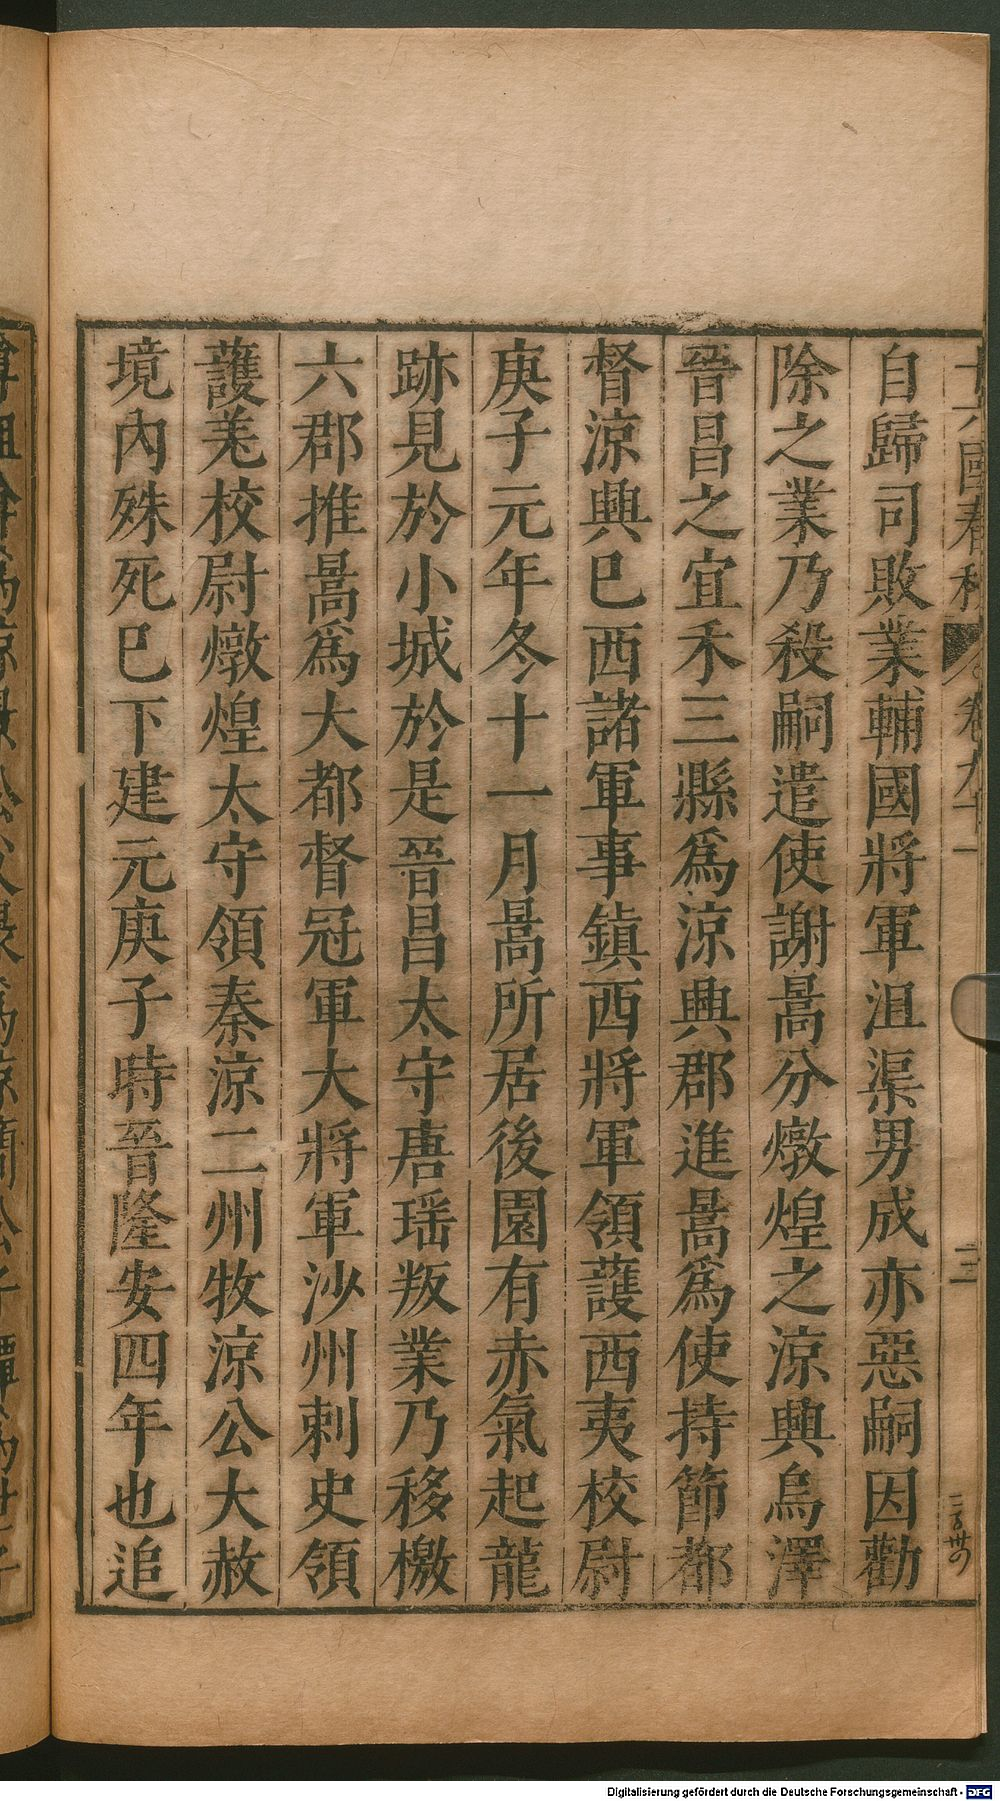 自歸司敗業輔國將軍沮渠男成亦惡嗣因勸
除之業乃殺嗣遣使謝暠分燉煌之涼興烏澤
晉昌之宜禾三縣爲涼興郡進暠爲使持節都
督涼興已西諸軍事鎮西將軍領護西夷校尉
庚子元年冬十一月暠所居後園有赤氣起龍
跡見於小城於是晉昌太守唐瑶叛業乃移檄
六郡推暠爲大都督冠軍大將軍沙州刺史領
護羌校尉燉煌太守領秦涼二州牧涼公大赦
境內殊死已下建元庚子時晉隆安四年也追
Digitalisierung gefördert durch die Deutsche Forschungsgemeinschaft - DFG